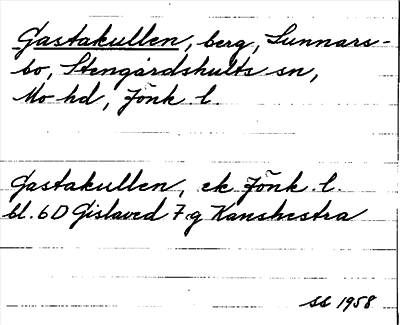 Gastakullen, berg, Sunnars-
bo, Stengårdshults sn,
Mo hd, Jönk. l.
Gastakullen, ek Jönk. l.
bl. 6D Gislaved 7:g Kanshestra
SB 1958